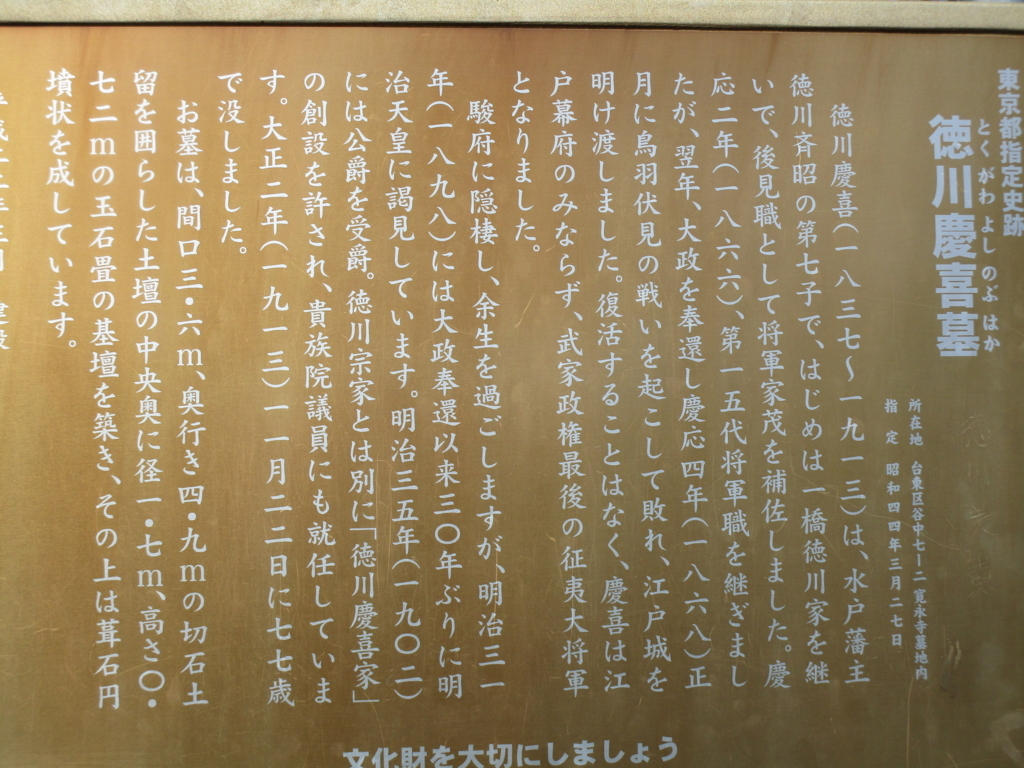 東京都指定史跡
とくがわよしのぶはか
徳川慶喜墓
所在地 台東区谷中七ー二 寛永寺墓地内
指定 昭和四四年三月二七日
徳川慶喜(一八三七〜一九一三)は、水戸藩主
徳川斉昭の第七子で、はじめは一橋徳川家を継
いで、後見職として将軍家茂を補佐しました。慶
応二年(一八六六)、第一五代将軍職を継ぎまし
たが、翌年、大政を奉還し慶応四年(一八六八)正
月に鳥羽伏見の戦いを起こして敗れ、江戸城を
明け渡しました。復活することはなく、慶喜は江
戸幕府のみならず、武家政権最後の征夷大将軍
となりました。
駿府に隠棲し、余生を過ごしますが、明治三一
年(一八九八)には大政奉還以来三〇年ぶりに明
治天皇に謁見しています。明治三五年(一九〇二)
には公爵を受爵。徳川宗家とは別に「徳川慶喜家」
の創設を許され、貴族院議員にも就任していま
す。大正二年(一九一三)一一月二二日に七七歳
で没しました。
お墓は、間口三・六m、奥行き四・九mの切石土
留を囲らした土壇の中央奥に径一・七m、高さ〇・
七二mの玉石畳の基壇を築き、その上は葺石円
墳状を成しています。
文化財を大切にしましょう